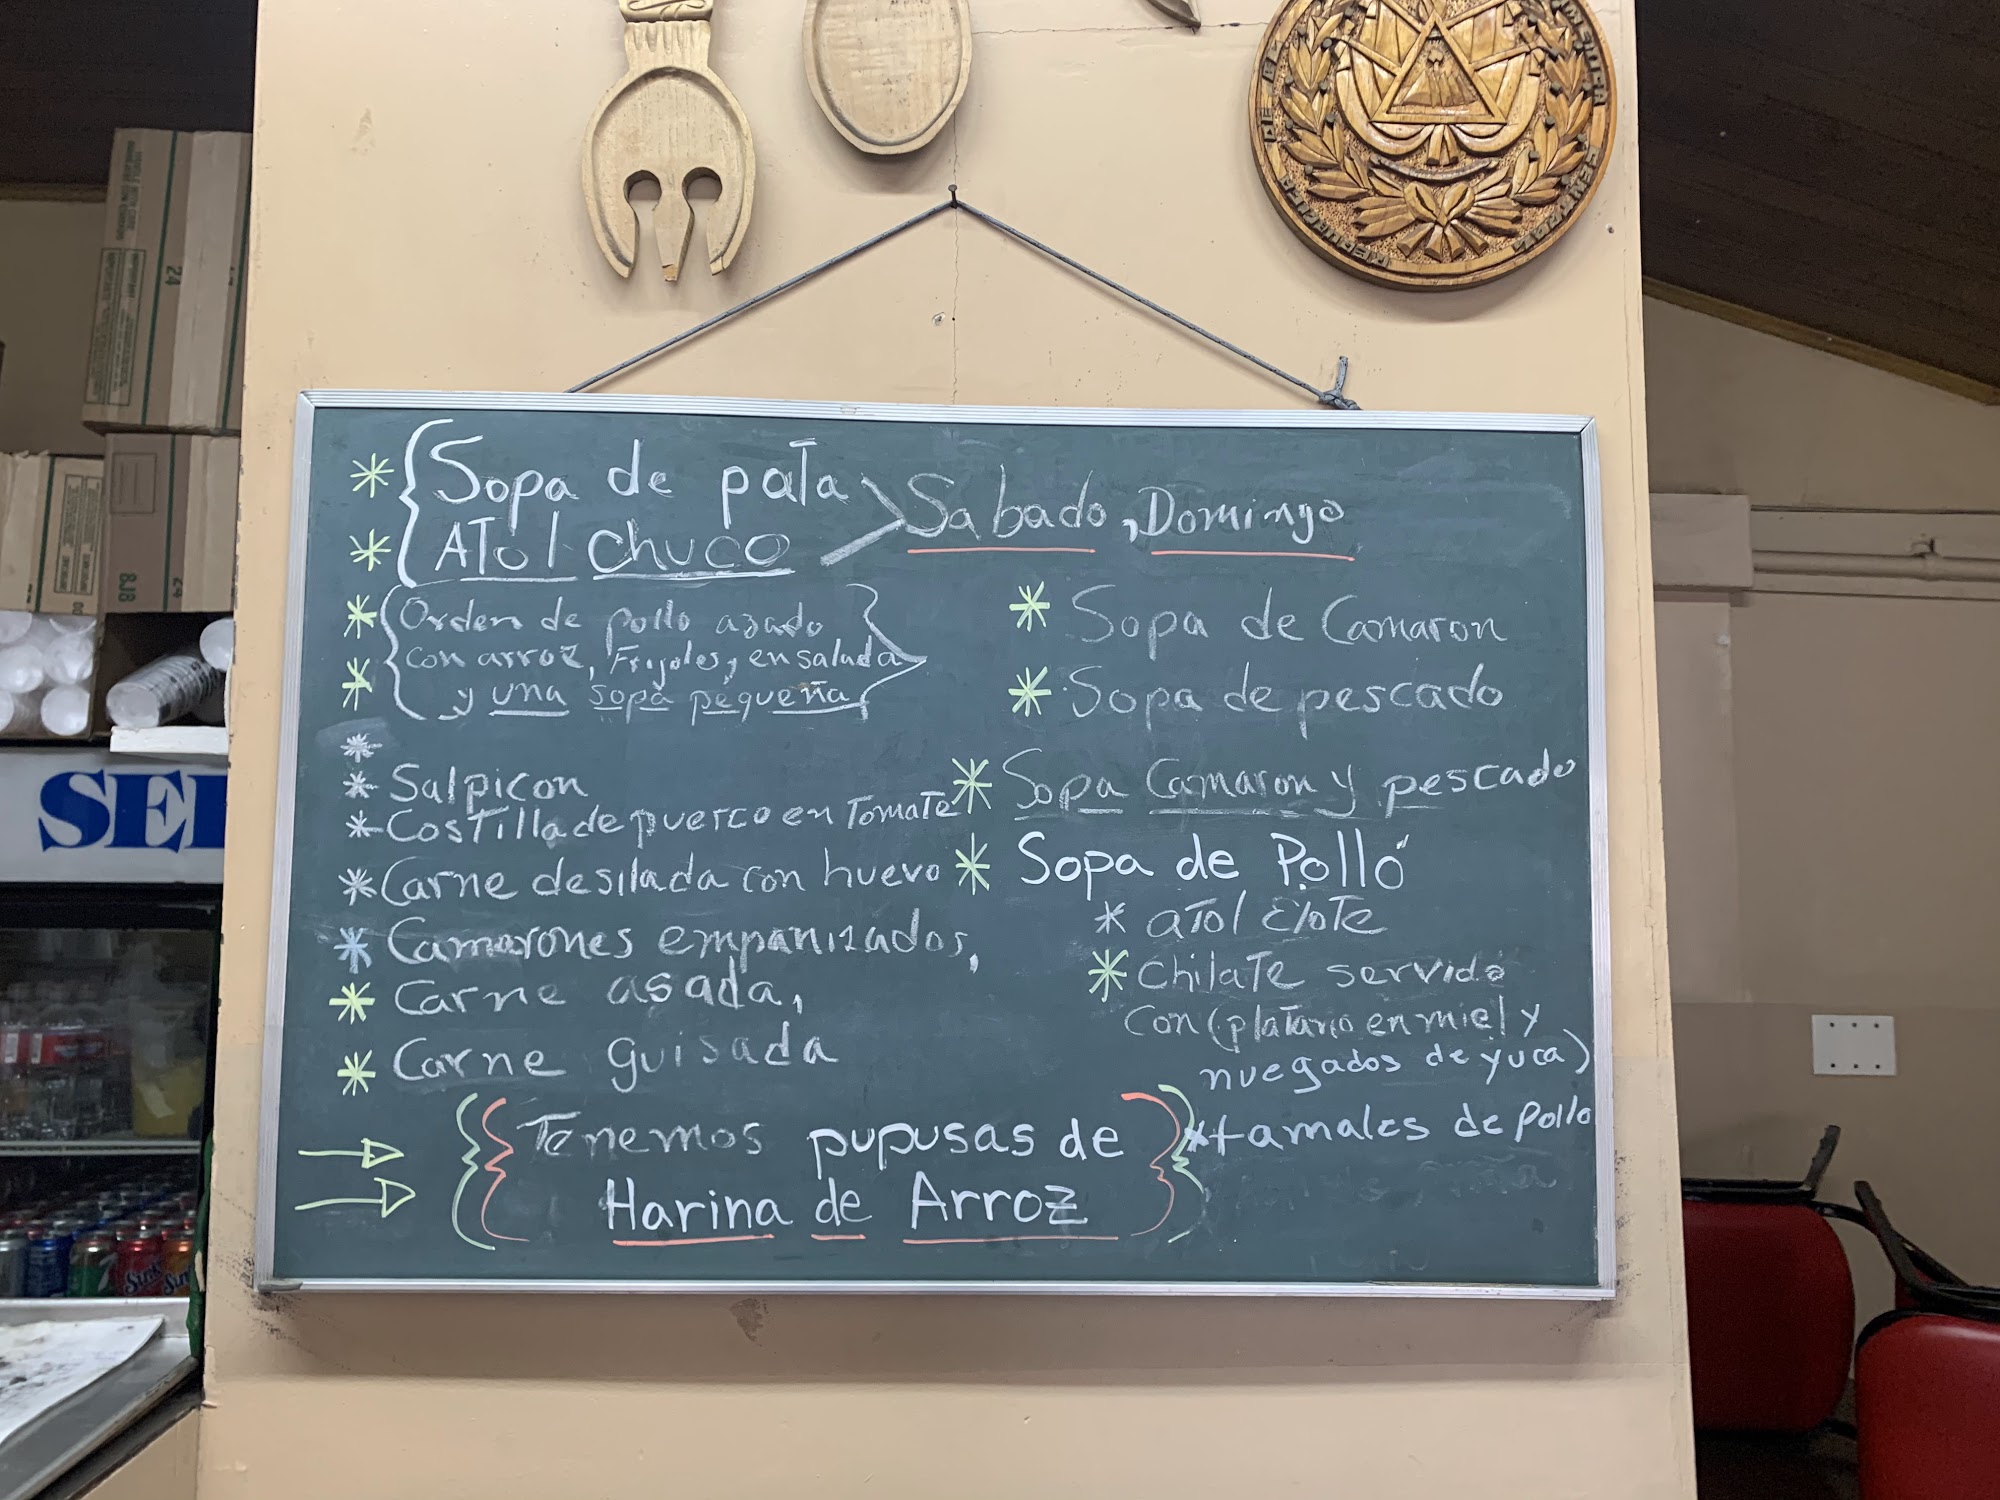 * Sopa de pata
* ATol Chuco
Sabado, Domingo
* Orden de pollo azado
con arroz, Frijoles, ensalada
* y una sopa pequeña
*
* Salpicon
* Costilla de puerco en Tomate
* Carne desilada con huevo
* Camarones empanizados,
* Carne asada,
* Carne guisada
* Sopa de Camaron
* Sopa de pescado
* Sopa Camaron y pescado
* Sopa de Pollo
* aTol EloTe
* ChilaTe servido
con (platano en miel y
nuegados de yuca)
* tamales de pollo
Tenemos pupusas de
Harina de Arroz
24
8J8
24